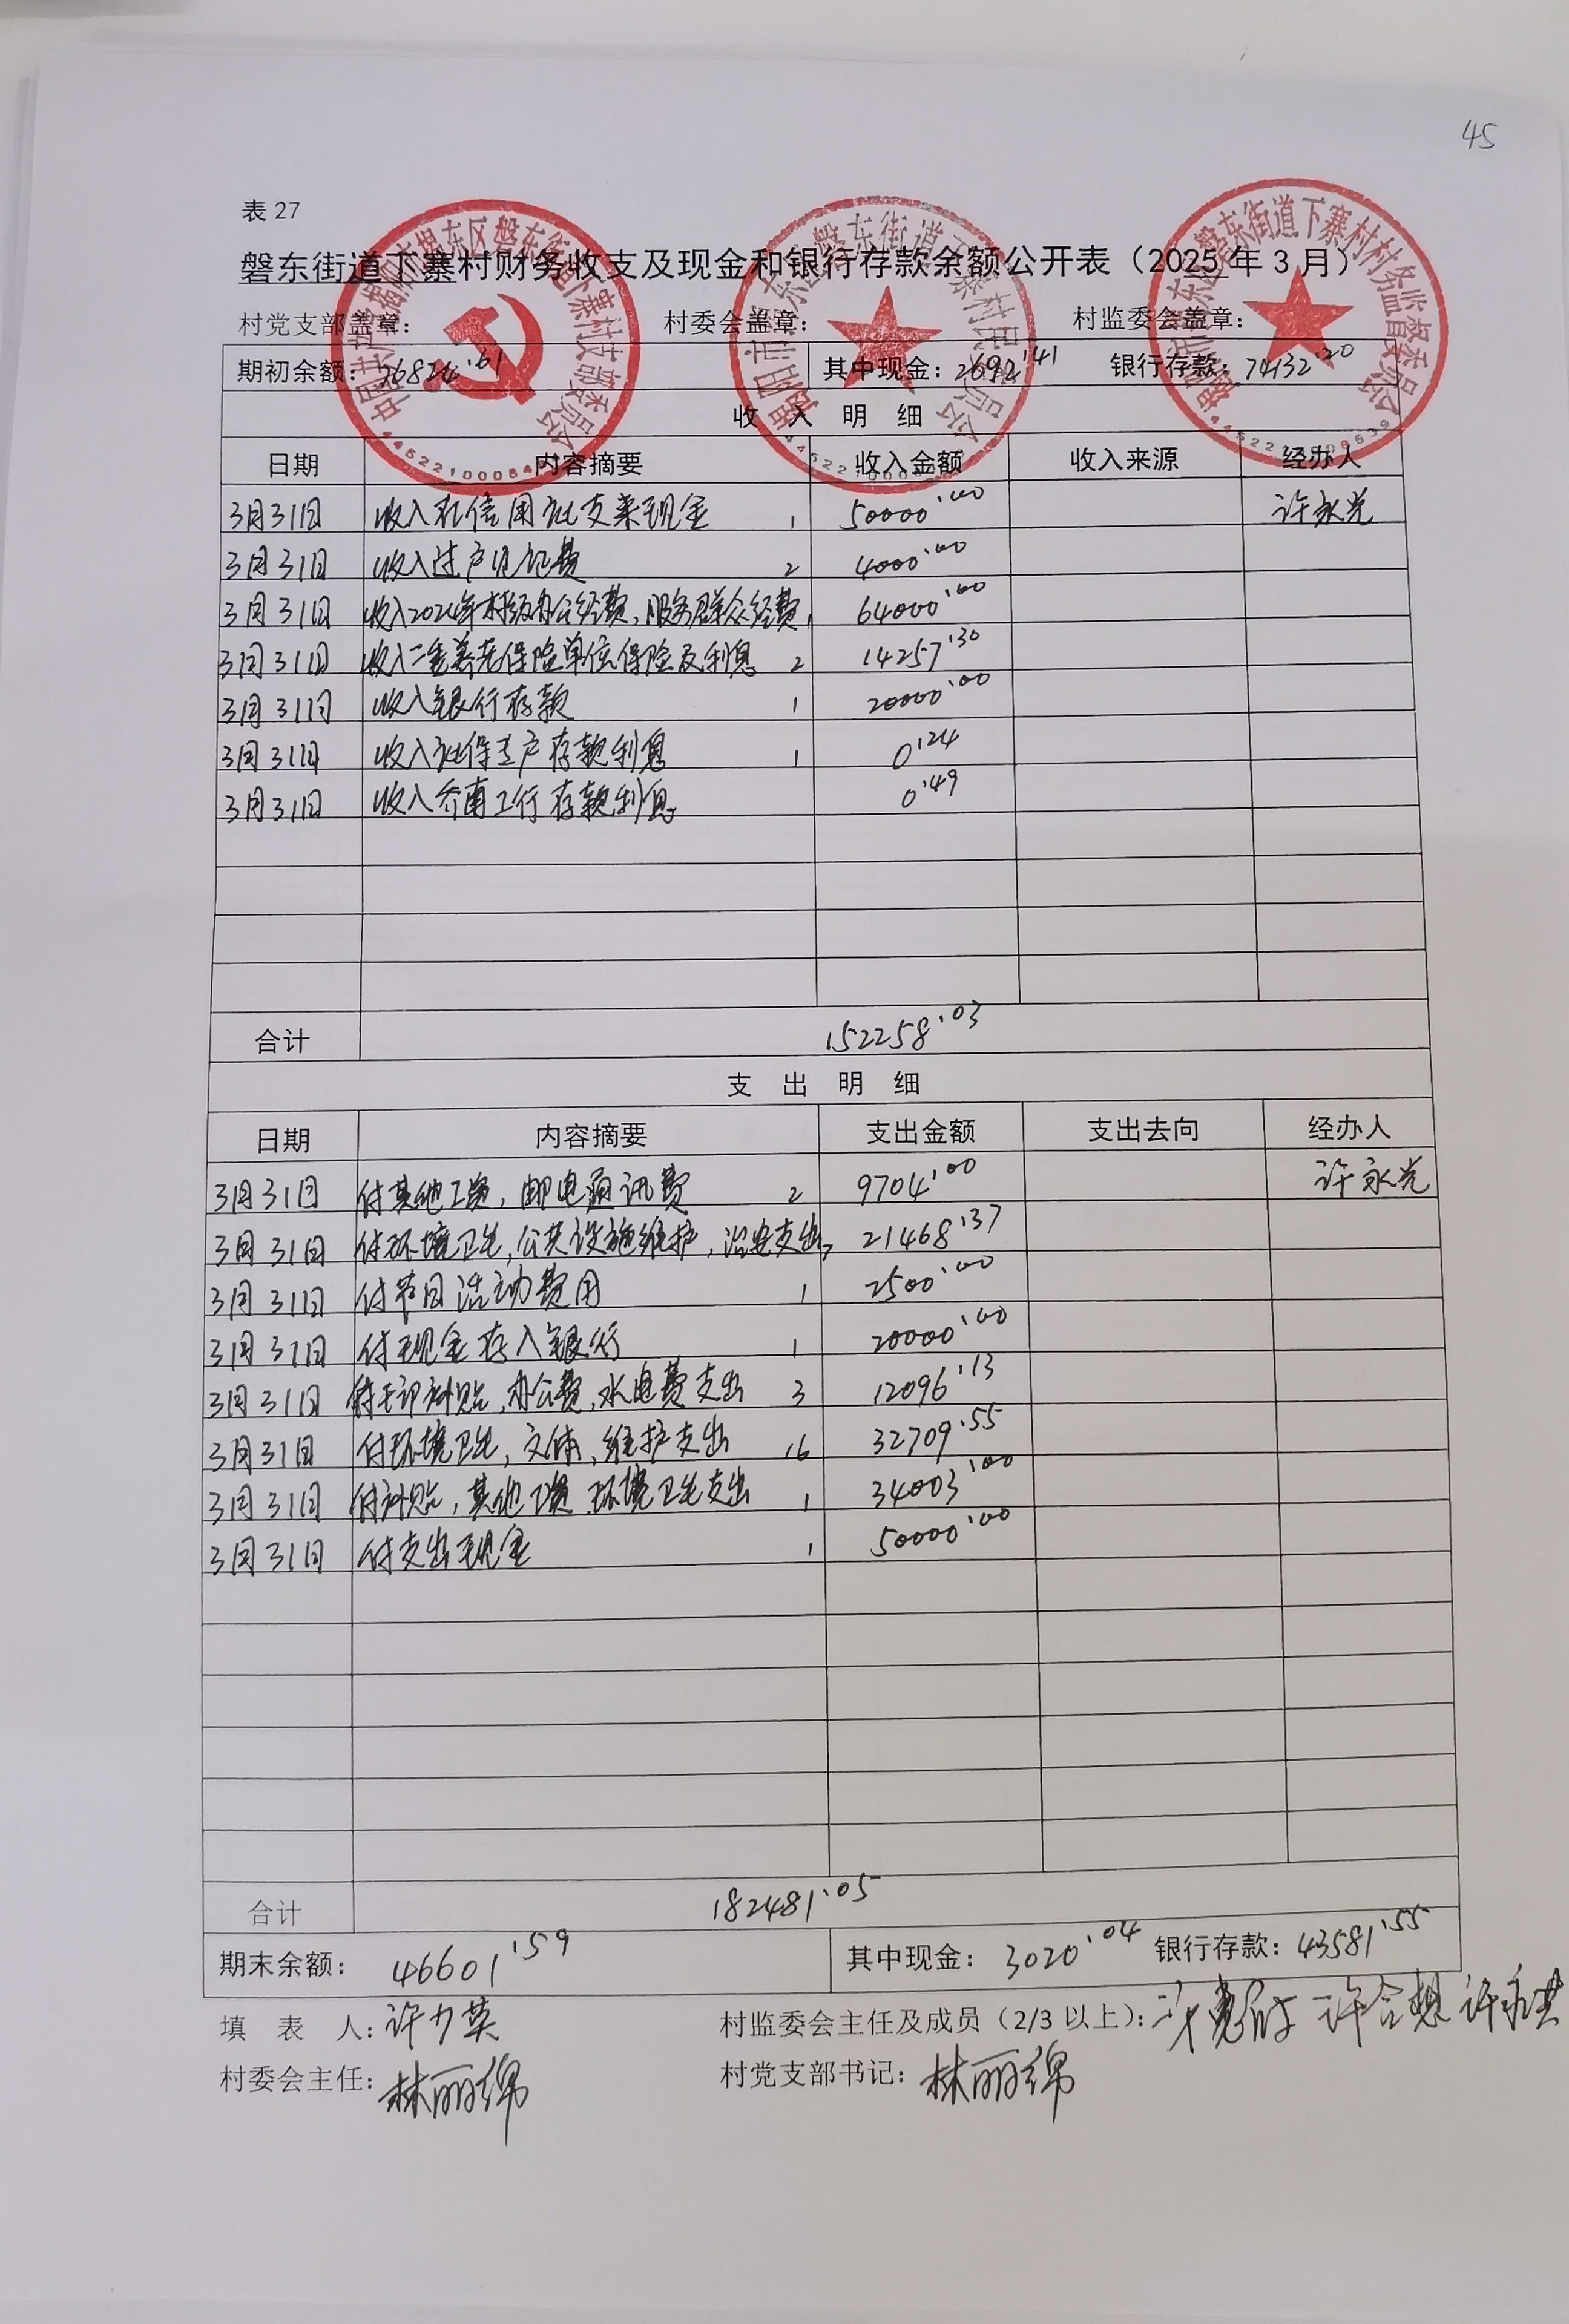 45
表 27
磐东街道下寨村财务收支及现金和银行存款余额公开表（2025 年 3 月）
村党支部盖章： 村委会盖章： 村监委会盖章：
期初余额：76824.61 其中现金：2692.41 银行存款：74132.20
收 入 明 细
日期 内容摘要 收入金额 收入来源 经办人
3月31日 收入社信用社支来现金 1 50000.00 许永光
3月31日 收入过户见证费 2 4000.00
3月31日 收入2024年村级办公经费、服务群众经费 1 64000.00
3月31日 收入二重养老保险单位保险及利息 2 14257.30
3月31日 收入银行存款 1 20000.00
3月31日 收入社保专户存款利息 1 0.24
3月31日 收入乔南工行存款利息 0.49
合计 152258.03
支 出 明 细
日期 内容摘要 支出金额 支出去向 经办人
3月31日 付其他工资，邮电通讯费 2 9704.00 许永光
3月31日 付环境卫生，公共设施维护，治安支出 7 21468.37
3月31日 付节日活动费用 1 2500.00
3月31日 付现金存入银行 1 20000.00
3月31日 付干部补贴，办公费，水电费支出 3 12096.13
3月31日 付环境卫生，文体，维护支出 16 32709.55
3月31日 付补贴，其他工资，环境卫生支出 1 34003.00
3月31日 付支出现金 1 50000.00
合计 182481.05
期末余额： 46601.59 其中现金： 3020.04 银行存款：43581.55
填 表 人：许少英 村监委会主任及成员（2/3 以上）：许合想
村委会主任：林丽绵 村党支部书记：林丽绵